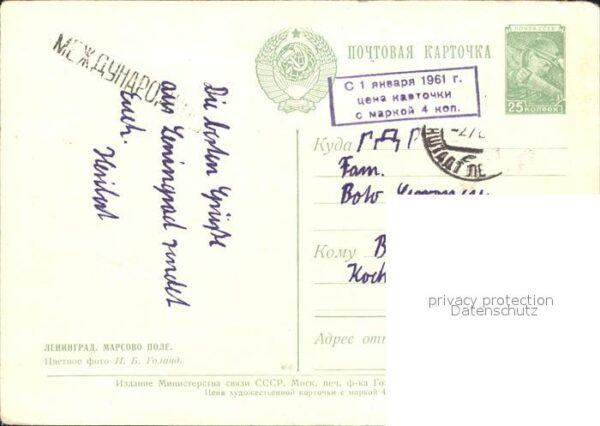 МЕЖДУНАРО
ПОЧТОВАЯ КАРТОЧКА
ПОЧТА СССР
25 КОПЕЕК
С 1 января 1961 г.
цена карточки
с маркой 4 коп.
Die besten Grüße
aus Leningrad sendet
Euch
Куда ГДР
Fam.
Кому B
Koch
Адрес отп
ЛЕНИНГРАД. МАРСОВО ПОЛЕ.
Цветное фото И. Б. Голанд.
Издание Министерства связи СССР. Моск. печ. ф-ка Го
Цена художественной карточки с маркой 4
privacy protection
Datenschutz